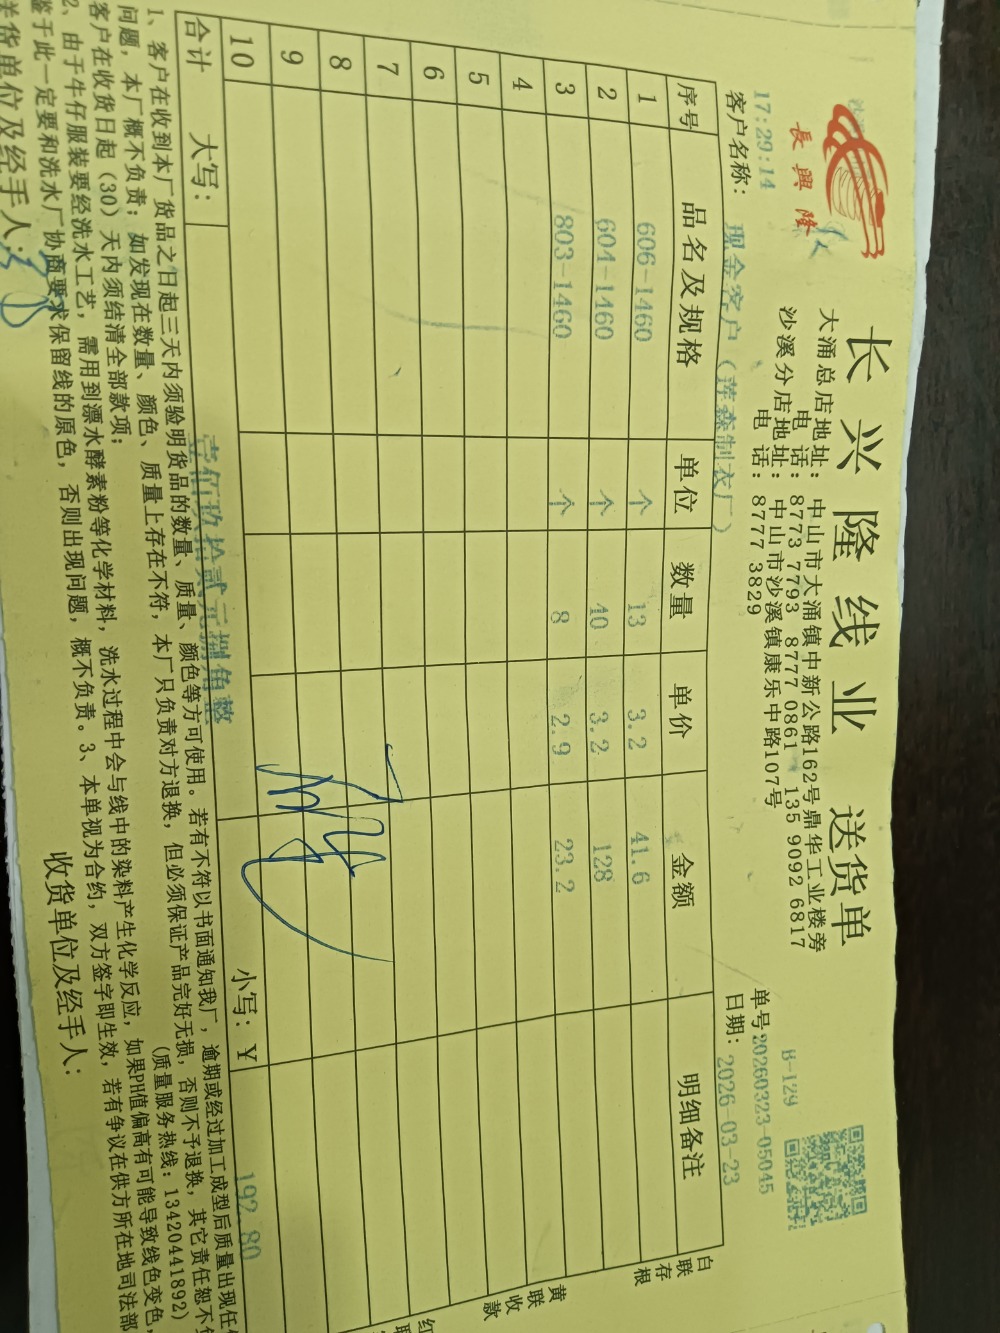 長興隆
长兴隆线业 送货单
大涌总店地址：中山市大涌镇中新公路162号鼎华工业楼旁
电 话：8773 7793 8777 0861 135 9092 6817
沙溪分店地址：中山市沙溪镇康乐中路107号
电 话：8777 3829
B-129
单号20260323-05045
17:29:14
客户名称：现金客户（莲森制衣厂）
日期：2026-03-23
序号 品名及规格 单位 数量 单价 金额 明细备注
1 606-1460 个 13 3.2 41.6
2 604-1460 个 40 3.2 128
3 803-1460 个 8 2.9 23.2
4
5
6
7
8
9
10
合计 大写：壹佰玖拾贰元捌角整 小写：￥ 192.80
1、客户在收到本厂货品之日起三天内须验明货品的数量、质量、颜色等方可使用。若有不符以书面通知我厂，逾期或经过加工成型后质量出现任
问题，本厂概不负责；如发现在数量、颜色、质量上存在不符，本厂只负责对方退换，但必须保证产品完好无损，否则不予退换，其它责任恕不
客户在收货日起（30）天内须结清全部款项；（质量服务热线：13420441892）
2、由于牛仔服装要经洗水工艺，需用到漂水酵素粉等化学材料，洗水过程中会与线中的染料产生化学反应，如果PH值偏高有可能导致线色变色，
鉴于此一定要和洗水厂协商要求保留线的原色，否则出现问题，概不负责。3、本单视为合约，双方签字即生效，若有争议在供方所在地司法部
货单位及经手人：
收货单位及经手人：
白联存根
黄联收款
红联